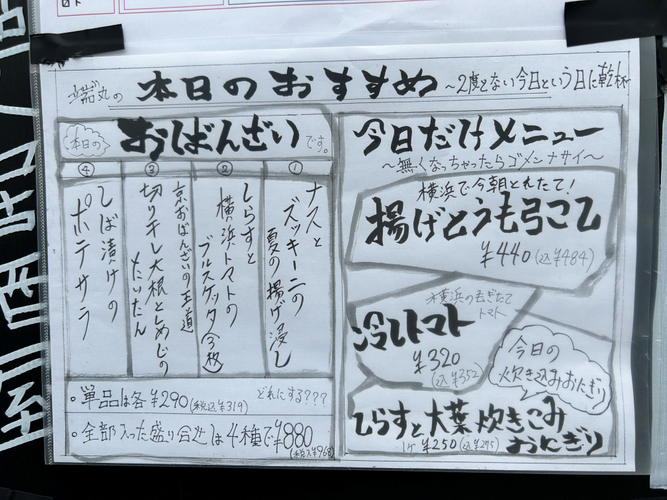 本日のおすすめ 〜2度とない今日という日に乾杯〜
本日の おばんざい です。
①
ナスと
ズッキーニの
夏の揚げ浸し
②
しらすと
横浜トマトの
ブルスケッタ(2枚)
③
京おばんざいの王道
切り干し大根としめじの
たいたん
④
しば漬けの
ポテサラ
・単品は各¥290(税込¥319) どれにする???
・全部入った盛り合せは4種で¥880
(税込¥968)
今日だけメニュー
〜無くなっちゃったらゴメンナサイ〜
横浜で今朝とれたて!
揚げとうもろこし
¥440(込¥484)
横浜のもぎたて
トマト
冷しトマト
¥320
(込¥352)
今日の
炊き込みおにぎり
しらすと大葉炊きこみ
おにぎり
1ケ ¥250(込¥275)